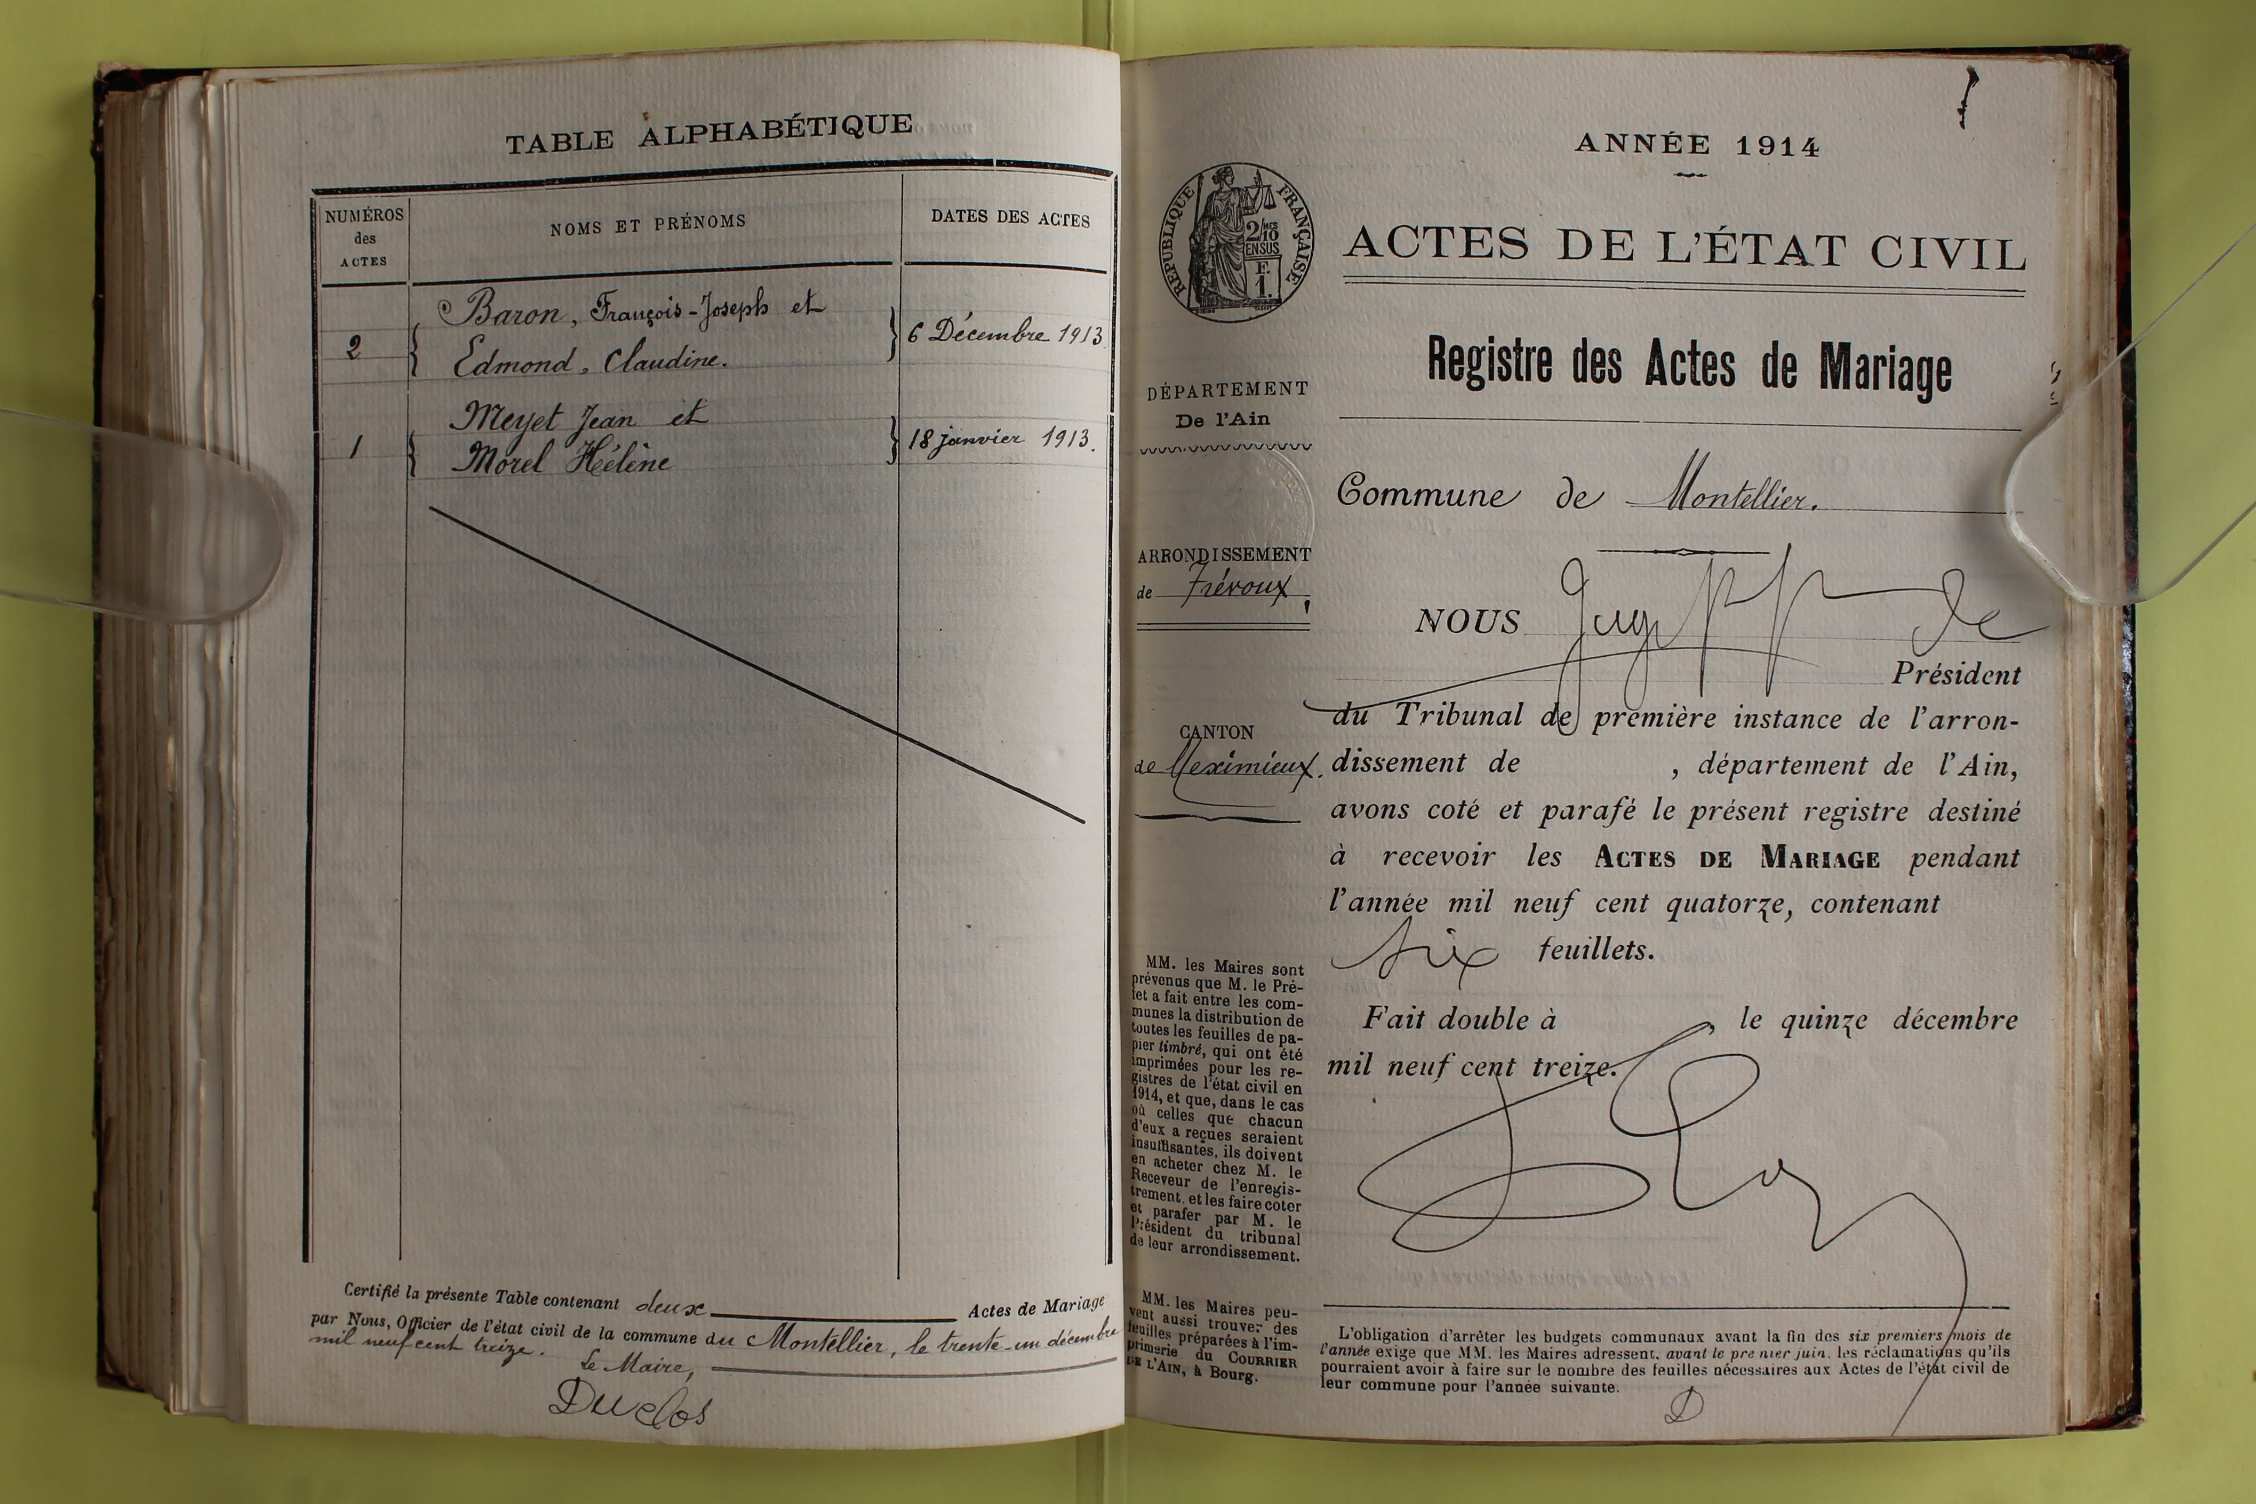 TABLE ALPHABÉTIQUE
NUMÉROS
des
ACTES
NOMS ET PRÉNOMS
DATES DES ACTES
Baron, François-Joseph et
2
6 Décembre 1913
Edmond, Claudine.
Meyet Jean et
1
18 janvier 1913.
Morel Hélène
Certifié la présente Table contenant deux Actes de Mariage
par Nous, Officier de l'état civil de la commune du Montellier, le trente-un décembre
mil neuf cent treize.
Le Maire,
Duclos
ANNÉE 1914
RÉPUBLIQUE FRANÇAISE
2/10
EN SUS
F.
1.
ACTES DE L'ÉTAT CIVIL
Registre des Actes de Mariage
DÉPARTEMENT
De l'Ain
Commune de Montellier.
ARRONDISSEMENT
de Trévoux
NOUS Juge de
Président
du Tribunal de première instance de l'arron-
CANTON
de Meximieux.
dissement de , département de l'Ain,
avons coté et parafé le présent registre destiné
à recevoir les ACTES DE MARIAGE pendant
l'année mil neuf cent quatorze, contenant
six feuillets.
Fait double à , le quinze décembre
mil neuf cent treize.
MM. les Maires sont
prévenus que M. le Pré-
fet a fait entre les com-
munes la distribution de
toutes les feuilles de pa-
pier timbré, qui ont été
imprimées pour les re-
gistres de l'état civil en
1914, et que, dans le cas
où celles que chacun
d'eux a reçues seraient
insuffisantes, ils doivent
en acheter chez M. le
Receveur de l'enregis-
trement, et les faire coter
et parafer par M. le
Président du tribunal
de leur arrondissement.
MM. les Maires peu-
vent aussi trouver des
feuilles préparées à l'im-
primerie du COURRIER
DE L'AIN, à Bourg.
L'obligation d'arrêter les budgets communaux avant la fin des six premiers mois de
l'année exige que MM. les Maires adressent, avant le premier juin, les réclamations qu'ils
pourraient avoir à faire sur le nombre des feuilles nécessaires aux Actes de l'état civil de
leur commune pour l'année suivante.
D